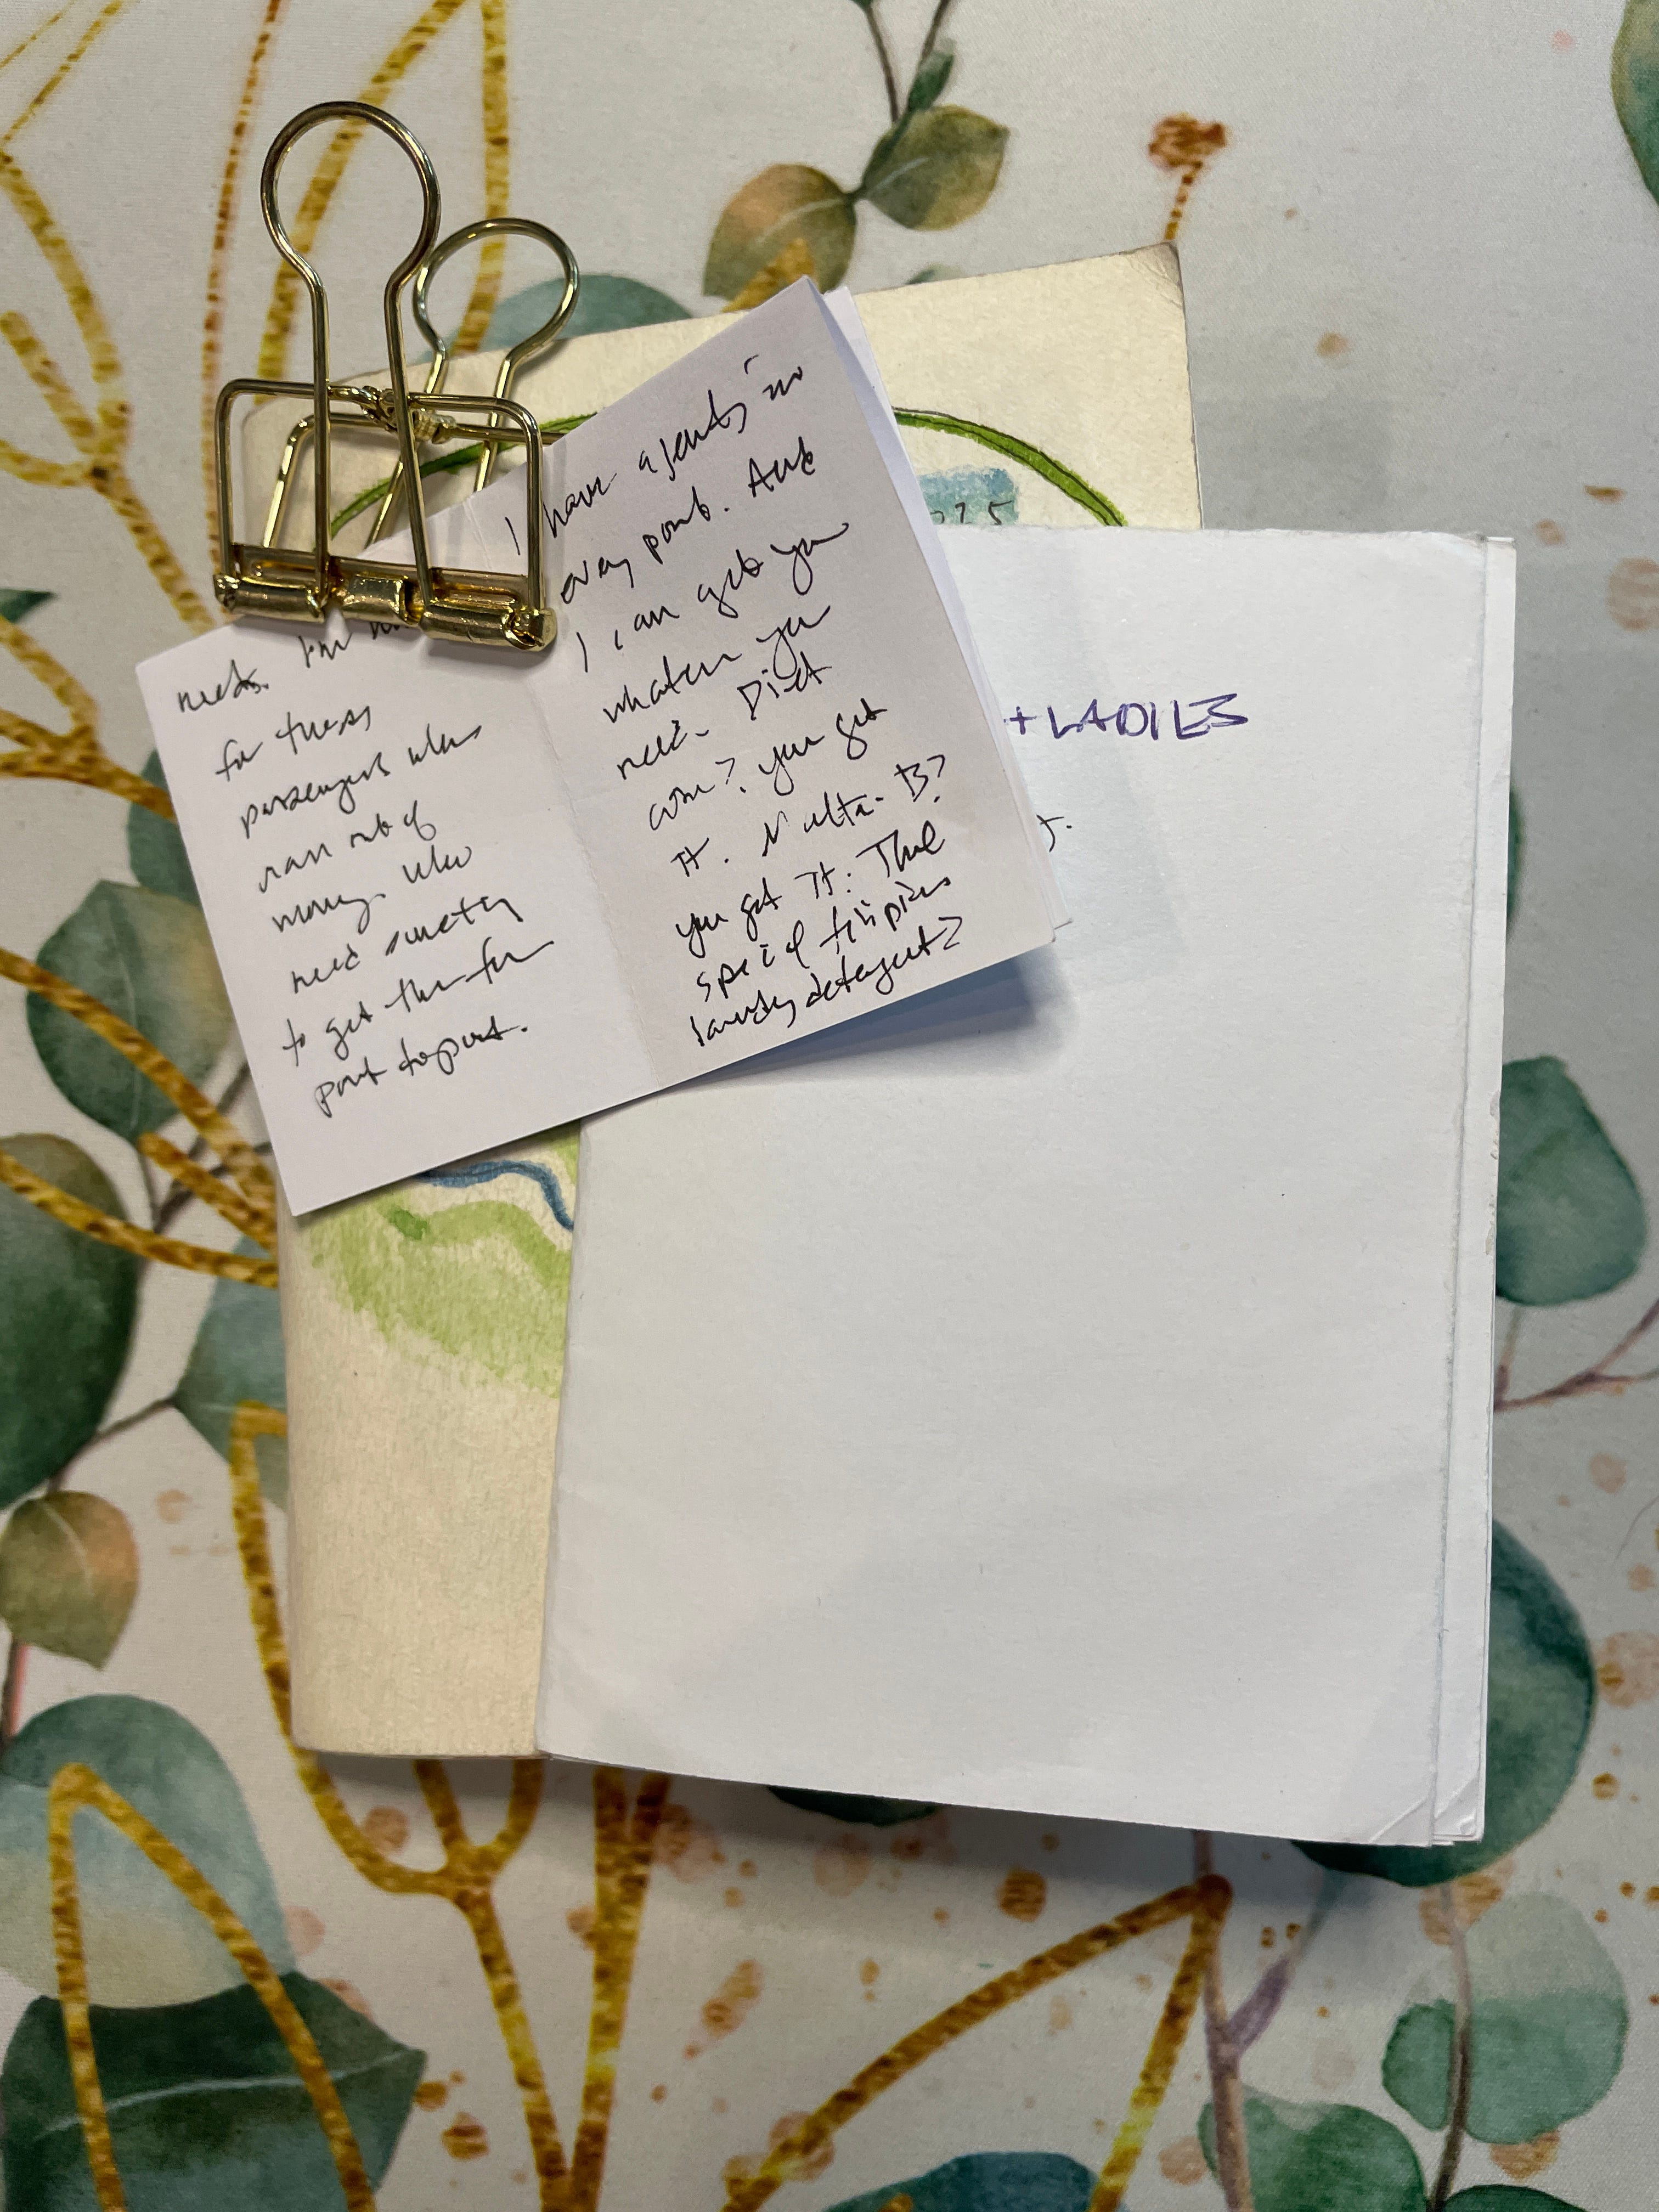 needs. I'm
for these
passengers who
ran out of
money. Who
need something
to get them from
port to port.
I have agents in
every port. And
I can get you
whatever you
need. Diet
coke? you get
it. Nutter-B?
you get it. That
special filipino
laundry detergent?
225
+ LADIES